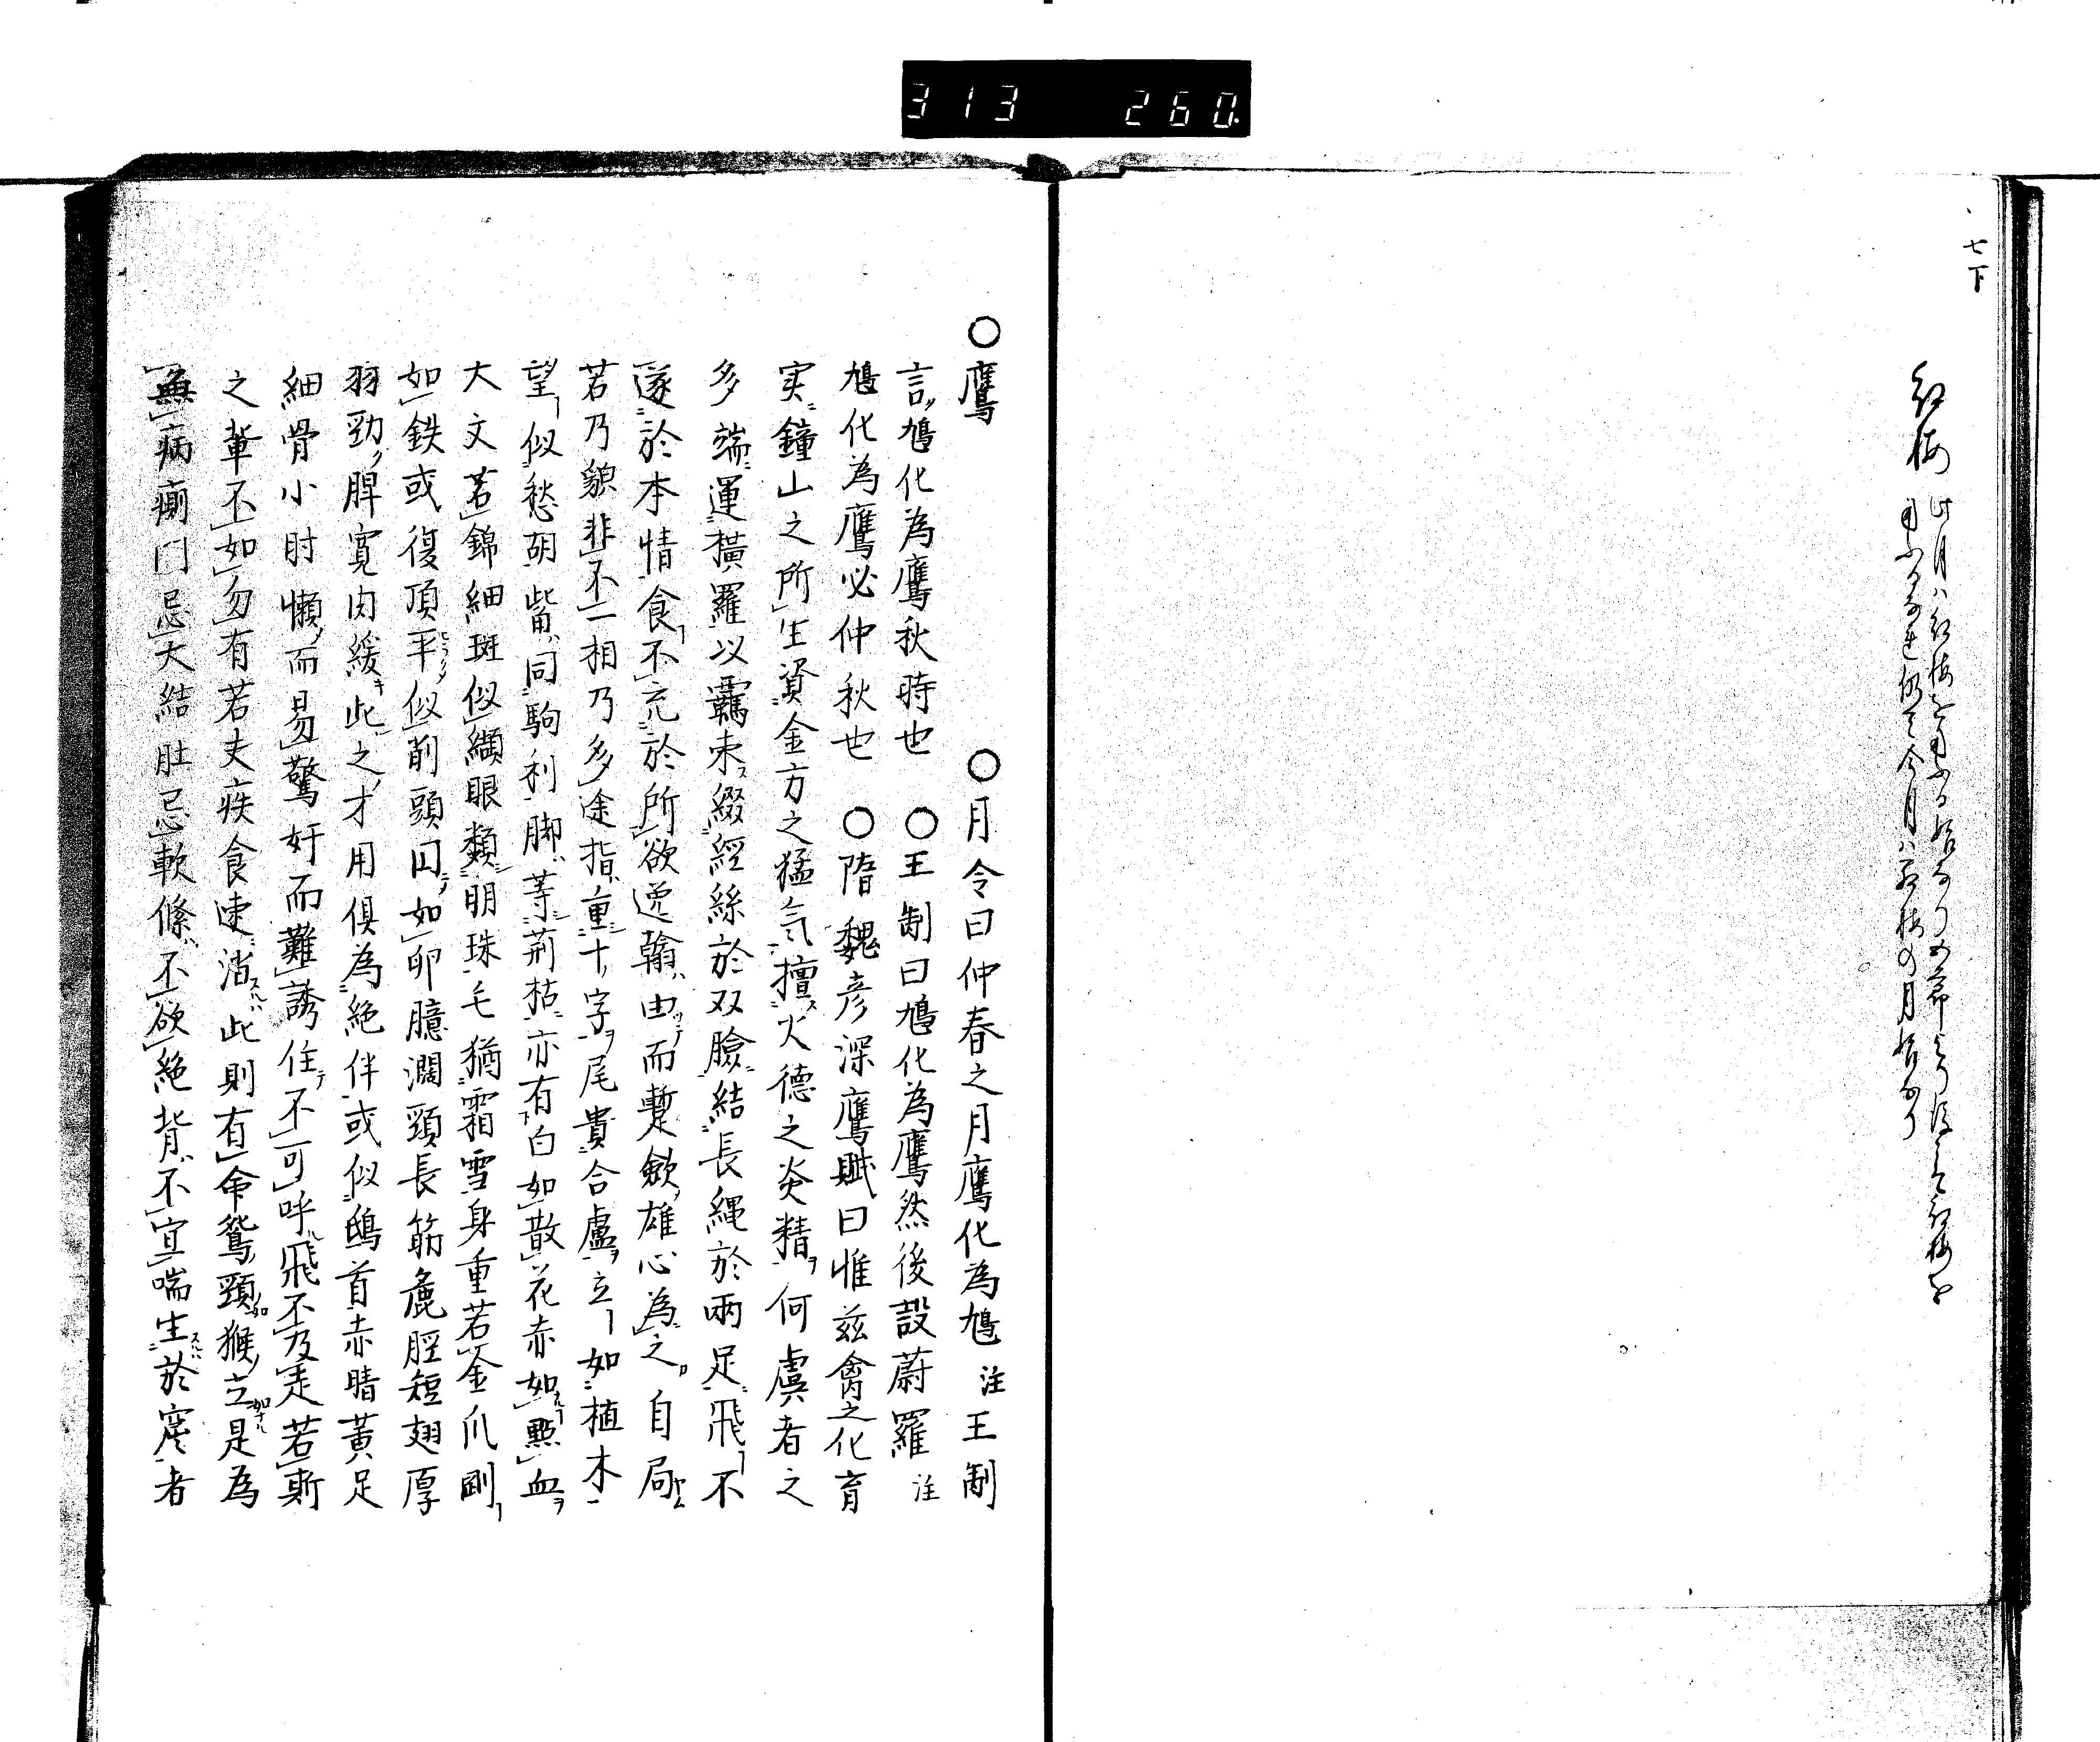 313 260
七下
紅梅
此月ハ紅梅を
今月ハ紅梅の月
○鷹 ○月令曰仲春之月鷹化為鳩 注 王制
言鳩化為鷹秋時也 ○王制曰鳩化為鷹然後設蔚羅 注
鳩化為鷹必仲秋也 ○隋魏彦深鷹賦曰惟茲禽之化育
実鐘山之所生資金方之猛気擅火徳之炎精何虞者之
多端運横羅以羈束綴經絲於双臉結長縄於両足飛不
遂於本情食不充於所欲逸翰由而暫歛雄心為之自局
若乃貌非不一相乃多途指重十字尾貴合盧立如植木
望似愁胡觜同駒利脚等荊枯亦有白如散花赤如點血
大文若錦細斑似纈眼類明珠毛猶霜雪身重若金爪剛
如鉄或復頂平似削頭円如卵臆濶頸長筋麁脛短翅厚
羽勁脾寛肉緩此之才用倶為絶伴或似鴟首赤睛黄足
細骨小肘懶而易驚奸而難誘住不可呼飛不及走若斯
之輩不如勿有若夫疾食速消此則有命鴛頸猴立是為
無病瘹門忌大結肚忌軟條不欲絶背不宜喘生於窟者